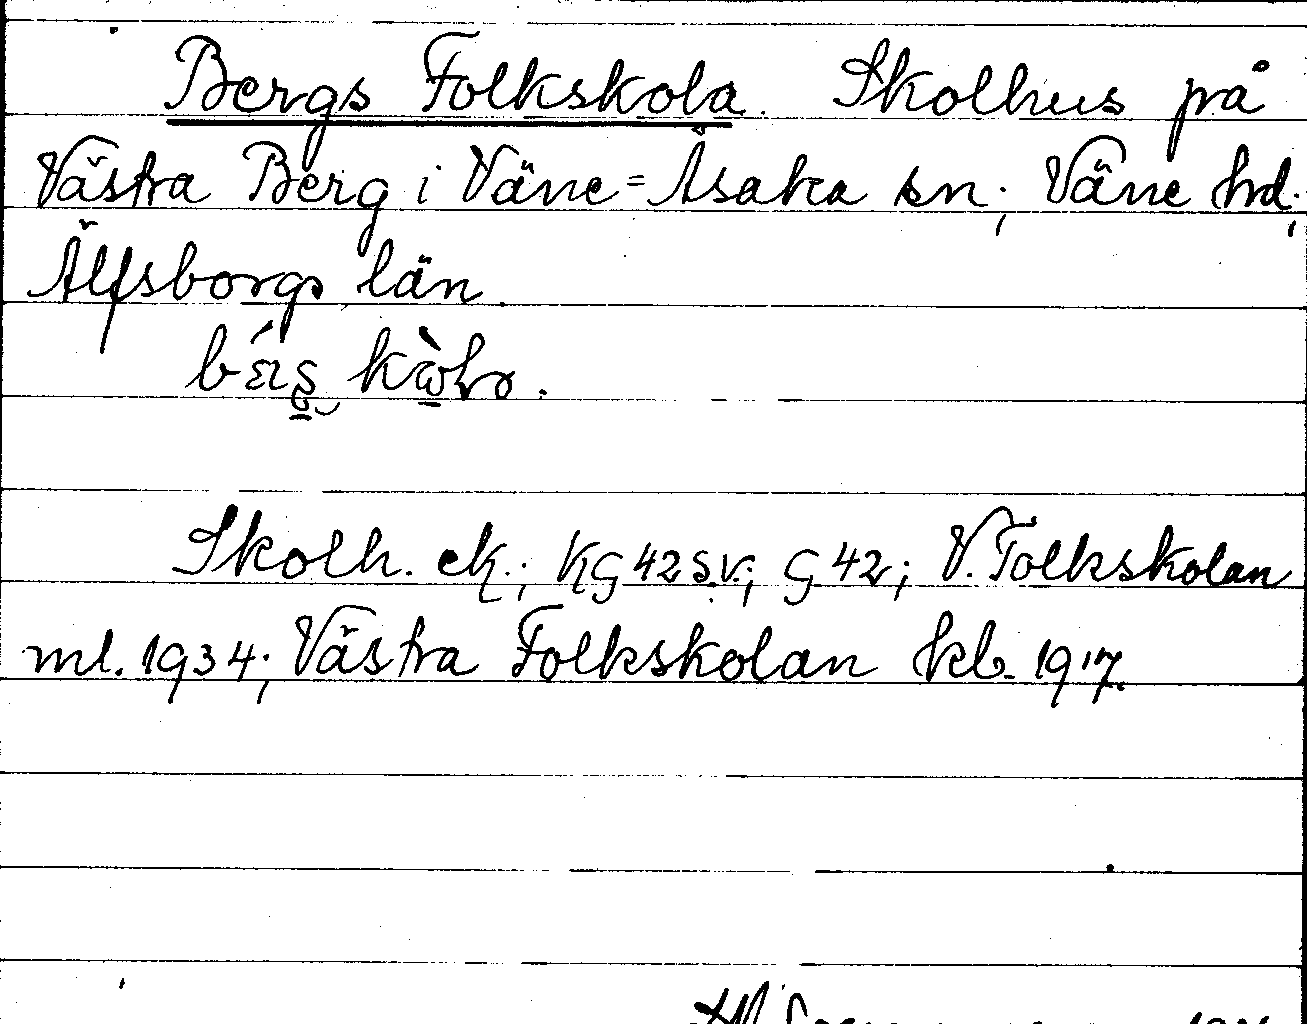 Bergs Folkskola. Skolhus på
Västra Berg i Väne=Åsaka sn; Väne hd;
Älfsborgs län.
Skolh. ek.; KG 42 sv.; G 42; V. Folkskolan
ml. 1934; Västra Folkskolan kb. 1917.